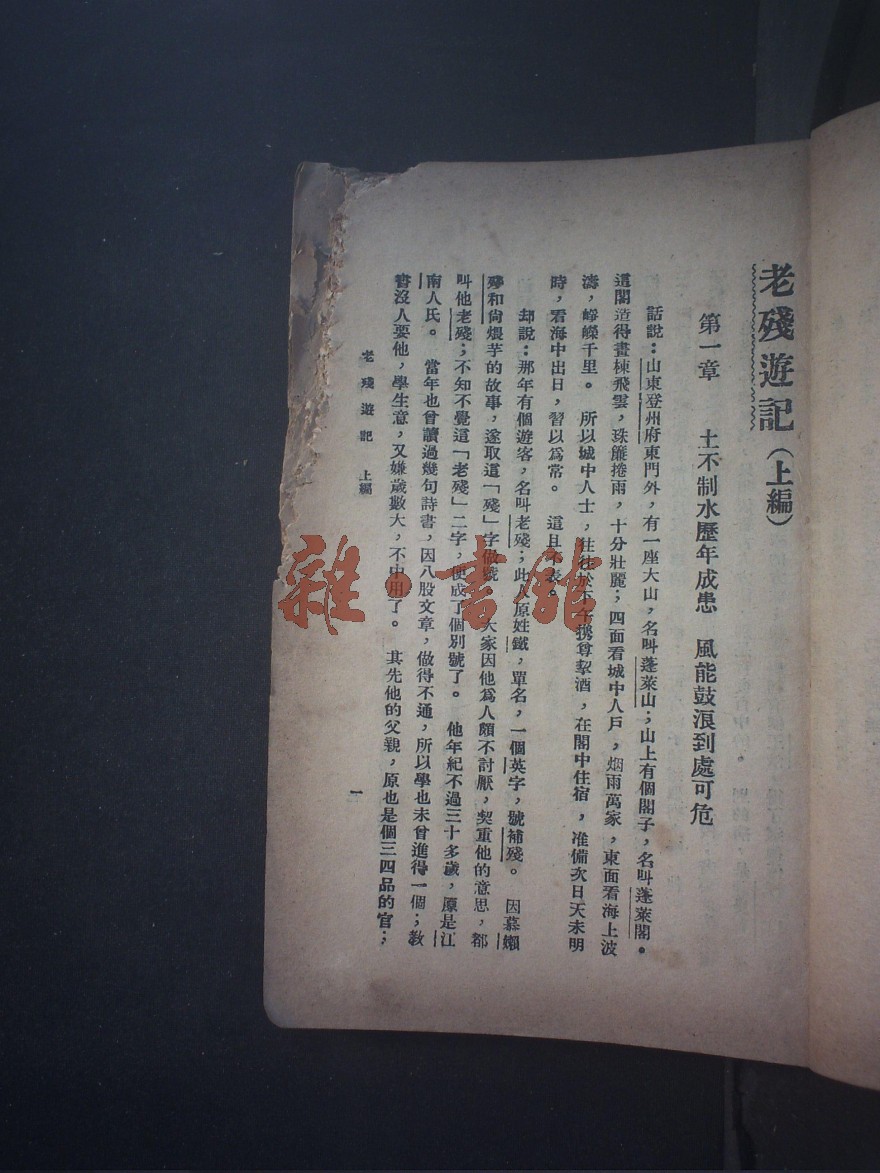 老殘遊記（上編）
第一章 土不制水歷年成患 風能鼓浪到處可危
話說：山東登州府東門外，有一座大山，名叫蓬萊山；山上有個閣子，名叫蓬萊閣。
這閣造得畫棟飛雲，珠簾捲雨，十分壯麗；四面看城中人戶，烟雨萬家，東面看海上波
濤，崢嶸千里。 所以城中人士，往往於下午携尊挈酒，在閣中住宿，准備次日天未明
時，看海中出日，習以爲常。 這且不表。
却說：那年有個遊客，名叫老殘；此人原姓鐵，單名，一個英字，號補殘。 因慕嬾
殘和尙煨芋的故事，遂取這「殘」字做號 大家因他爲人頗不討厭，契重他的意思，都
叫他老殘；不知不覺這「老殘」二字，便成了個別號了。 他年紀不過三十多歲，原是江
南人氏。 當年也曾讀過幾句詩書，因八股文章，做得不通，所以學也未曾進得一個；敎
書沒人要他，學生意，又嫌歲數大，不中用了。 其先他的父親，原也是個三四品的官；
老殘遊記 上編
一
雜·書館